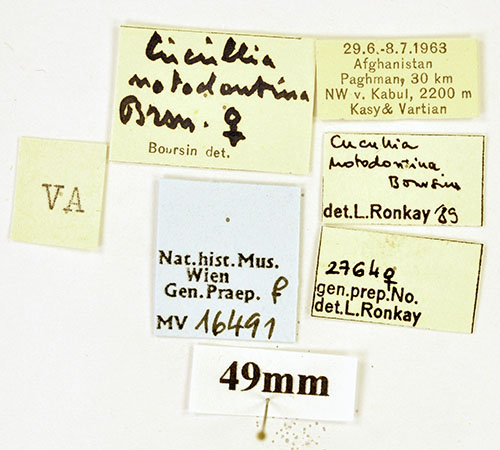 Cucullia
notodontina
Brsn. ♀
Boursin det.
29.6.-8.7.1963
Afghanistan
Paghman, 30 km
NW v. Kabul, 2200 m
Kasy & Vartian
Cucullia
notodontina
Boursin
det.L.Ronkay 89
VA
Nat.hist.Mus.
Wien
Gen.Praep. ♀
MV 16491
2764♀
gen.prep.No.
det.L.Ronkay
49mm